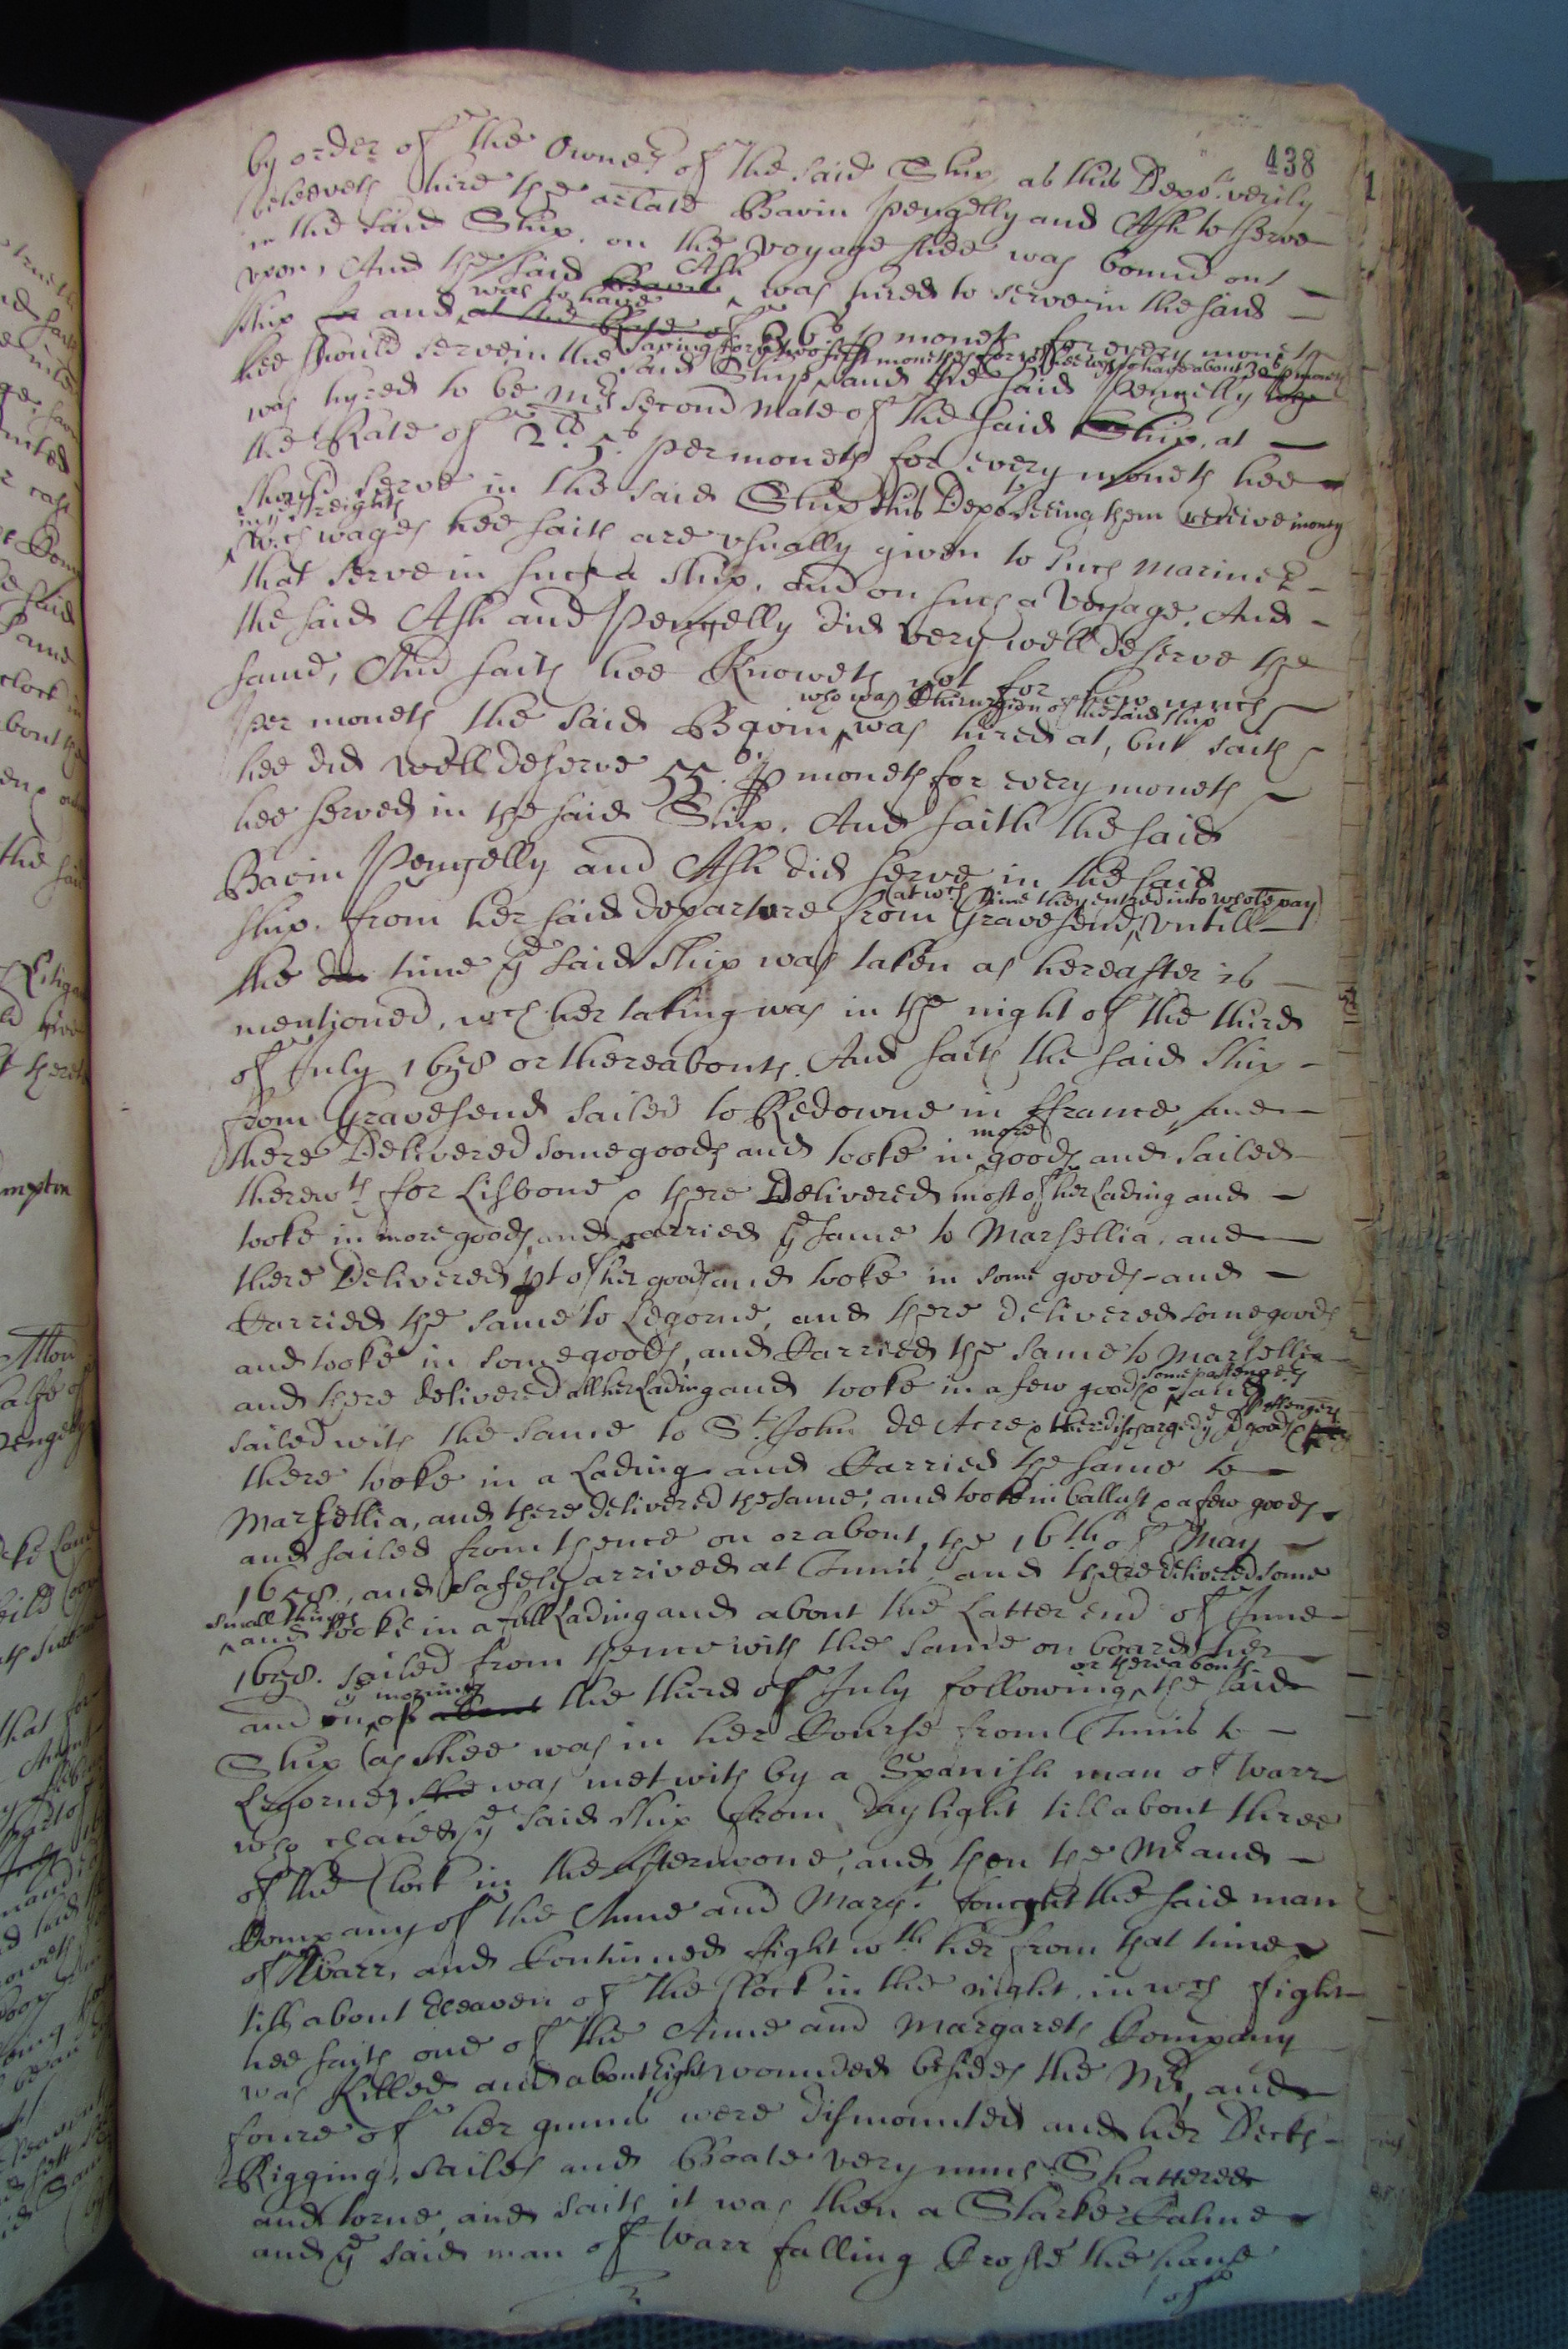 438
by order of the Owners of the said Ship as this Depot. verily
beleeveth hire the arlate Bavin Pengelly and Ash to serve
in the said Ship. on the voyage shee was bound out
upon, And the said Bavin Ash was hired to serve in the said
ship for and at the Rate of was to have 26s p moneth for every moneth
hee should serve in the said Ship saving for two first moneths for wch hee was to have about 30s p moneth and the said Pengelly was
was hyred to be Mrs second Mate of the said Ship. at
the Rate of 2li. 5s. per moneth for every moneth hee
should serve in the said Ship this Depot. seeing them receive money
wch wages hee saith are usually given to such Mariners
that serve in such a ship. and on such a Voyage. And
the said Ash and Pengelly did very well deserve the
same, And saith hee Knoweth not for how much
per moneth the said Bavin who was Chirurgion of the said ship was hired at, but saith
hee did well deserve 55s. p moneth for every moneth
hee served in the said Ship. And saith the said
Bavin Pengelly and Ash did serve in the said
ship. from her said departure from Gravesend (at wch time they entred into whole pay) untill
the time ye said ship was taken as hereafter is
mentioned, wch her taking was in the night of the third
of July 1658 or thereabouts. And saith the said ship
from Gravesend sailed to Redowne in ffrance, and
there Delivered some goods and tooke in more goods and sailed
therewth for Lisbone & there Delivered most of her Lading and
tooke in more goods, and carried ye same to Marsellia, and
there Delivered pt of her goods and tooke in some goods and
Carried the same to Legorne, and there delivered some goods
and tooke in some goods, and Carried the same to Marsellia
and there delivered all her Lading and tooke in a few goods & some passengers and
sailed with the same to St. John de Acre & there discharged ye sd goods & passengers
there tooke in a Lading and Carried the same to
Marsellia, and there delivered the same, and tooke in ballast & a few goods
and sailed from thence on or about the 16th of May
1658., and safely arrived at Tunis, and there delivered some
small things and tooke in a full Lading and about the Latter end of June
1658. sailed from thence with the same on board her
and on ye morning of about the third of July following or thereabouts the said
Ship (as shee was in her Course from Tunis to
Legorne) shee was met with by a Spanish man of Warr
who chased ye said ship from Daylight till about three
of the Clock in the afternoone, and then the Mr and
Company of the Anne and Margt. fought the said man
of Warr, and Continued fight wth her from that time
till about Eleaven of the Clock in the night, in wch fight
hee saith one of the Anne and Margarets Company
was Killed and about Eight wounded besides the Mr, and
foure of her gunns were dismounted and her Decks
Rigging, sailes and Boate very much Shattered
and torne, and saith it was then a Starke Calme
and ye said man of Warr falling Crosse the hause
of